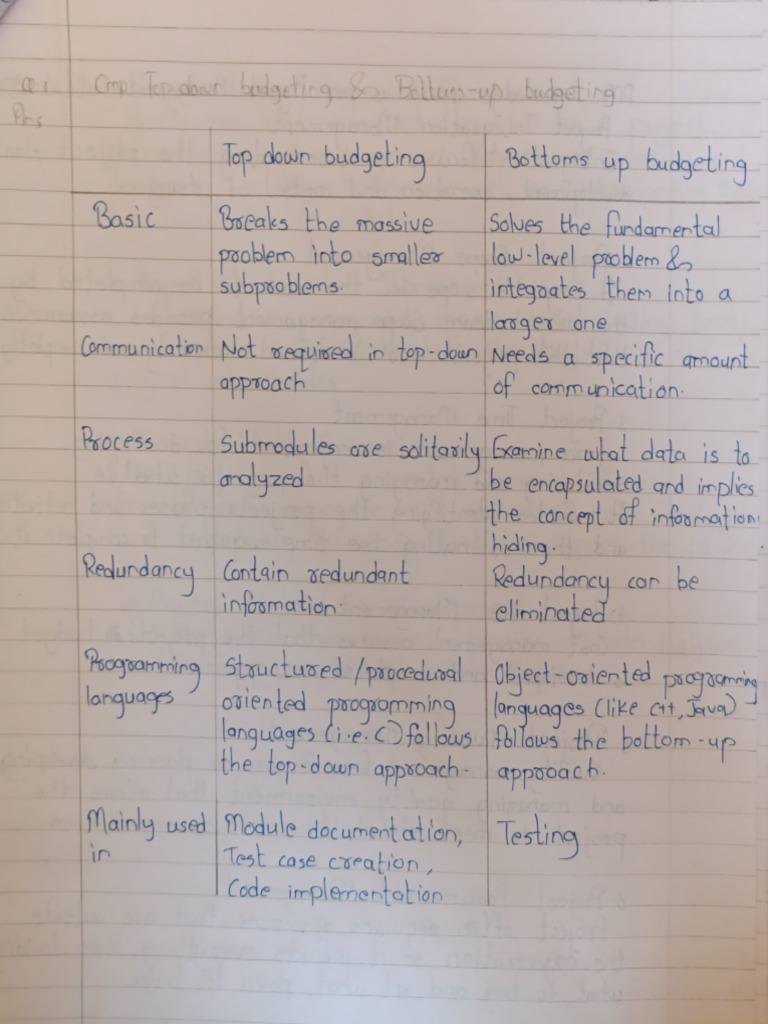 Q1 Cmp Top down budgeting & Bottum-up budgeting
Ans
Top down budgeting Bottoms up budgeting
Basic Breaks the massive Solves the fundamental
problem into smaller low-level problem &
subproblems. integrates them into a
larger one
Communication Not required in top-down Needs a specific amount
approach of communication.
Process Submodules are solitarily Examine what data is to
analyzed be encapsulated and implies
the concept of information
hiding.
Redundancy Contain redundant Redundancy can be
information. eliminated
Programming Structured/procedural Object-oriented programming
languages oriented programming languages (like C++, Java)
languages (i.e. C) follows follows the bottom-up
the top-down approach. approach.
Mainly used Module documentation, Testing
in Test case creation,
Code implementation